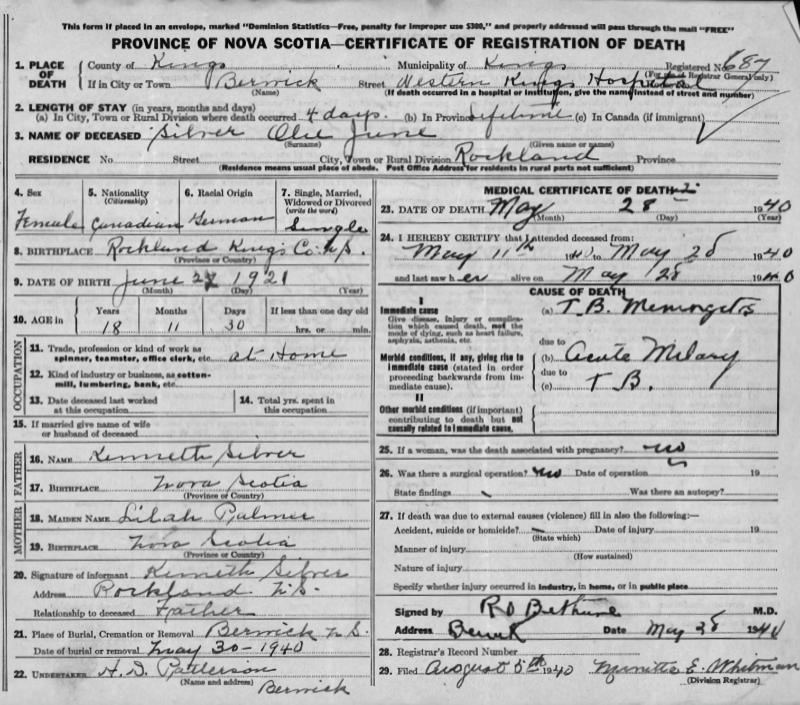 This form if placed in an envelope, marked "Dominion Statistics—Free, penalty for improper use $300," and properly addressed will pass through the mail "FREE"
PROVINCE OF NOVA SCOTIA—CERTIFICATE OF REGISTRATION OF DEATH
1. PLACE OF DEATH
County of Kings Municipality of Kings Registered No. 687
(For use of Registrar General only)
If in City or Town Berwick Street Western Kings Hospital
(Name) (If death occurred in a hospital or institution, give the name instead of street and number)
2. LENGTH OF STAY (in years, months and days)
(a) In City, Town or Rural Division where death occurred 4 days. (b) In Province Lifetime (c) In Canada (if immigrant)
3. NAME OF DECEASED Silver Olie June
(Surname) (Given name or names)
RESIDENCE No Street City, Town or Rural Division Rockland Province
(Residence means usual place of abode. Post Office Address for residents in rural parts not sufficient)
4. Sex
Female
5. Nationality
(Citizenship)
Canadian
6. Racial Origin
German
7. Single, Married, Widowed or Divorced
(write the word)
Single
8. BIRTHPLACE Rockland Kings Co. N.S.
(Province or Country)
9. DATE OF BIRTH June 27 1921
(Month) (Day) (Year)
10. AGE in
Years Months Days If less than one day old
18 11 30 hrs. or min.
OCCUPATION
11. Trade, profession or kind of work as spinner, teamster, office clerk, etc. at Home
12. Kind of industry or business, as cotton-mill, lumbering, bank, etc.
13. Date deceased last worked at this occupation
14. Total yrs. spent in this occupation
15. If married give name of wife or husband of deceased
FATHER
16. NAME Kenneth Silver
17. BIRTHPLACE Nova Scotia
(Province or Country)
MOTHER
18. MAIDEN NAME Lilah Palmer
19. BIRTHPLACE Nova Scotia
(Province or Country)
20. Signature of informant Kenneth Silver
Address Rockland N.S.
Relationship to deceased Father
21. Place of Burial, Cremation or Removal Berwick N.S.
Date of burial or removal May 30 - 1940
22. UNDERTAKER H. D. Patterson
(Name and address) Berwick
MEDICAL CERTIFICATE OF DEATH
23. DATE OF DEATH May 28 1940
(Month) (Day) (Year)
24. I HEREBY CERTIFY that I attended deceased from:
May 11th 1940 to May 28 1940
and last saw her alive on May 28 1940
CAUSE OF DEATH
I
Immediate cause
Give disease, injury or complication which caused death, not the mode of dying, such as heart failure, asphyxia, asthenia, etc.
(a) T.B. Meningitis
due to
Morbid conditions, if any, giving rise to immediate cause (stated in order proceeding backwards from immediate cause).
(b) Acute Miliary
due to
(c) T B.
II
Other morbid conditions (if important) contributing to death but not causally related to immediate cause.
25. If a woman, was the death associated with pregnancy? no
26. Was there a surgical operation? no Date of operation 19
State findings Was there an autopsy?
27. If death was due to external causes (violence) fill in also the following:—
Accident, suicide or homicide? Date of injury 19
(State which)
Manner of injury
(How sustained)
Nature of injury
Specify whether injury occurred in industry, in home, or in public place
Signed by R D Bethune M.D.
Address Berwick Date May 28 1940
28. Registrar's Record Number
29. Filed August 5th 1940 E. Whitman
(Division Registrar)